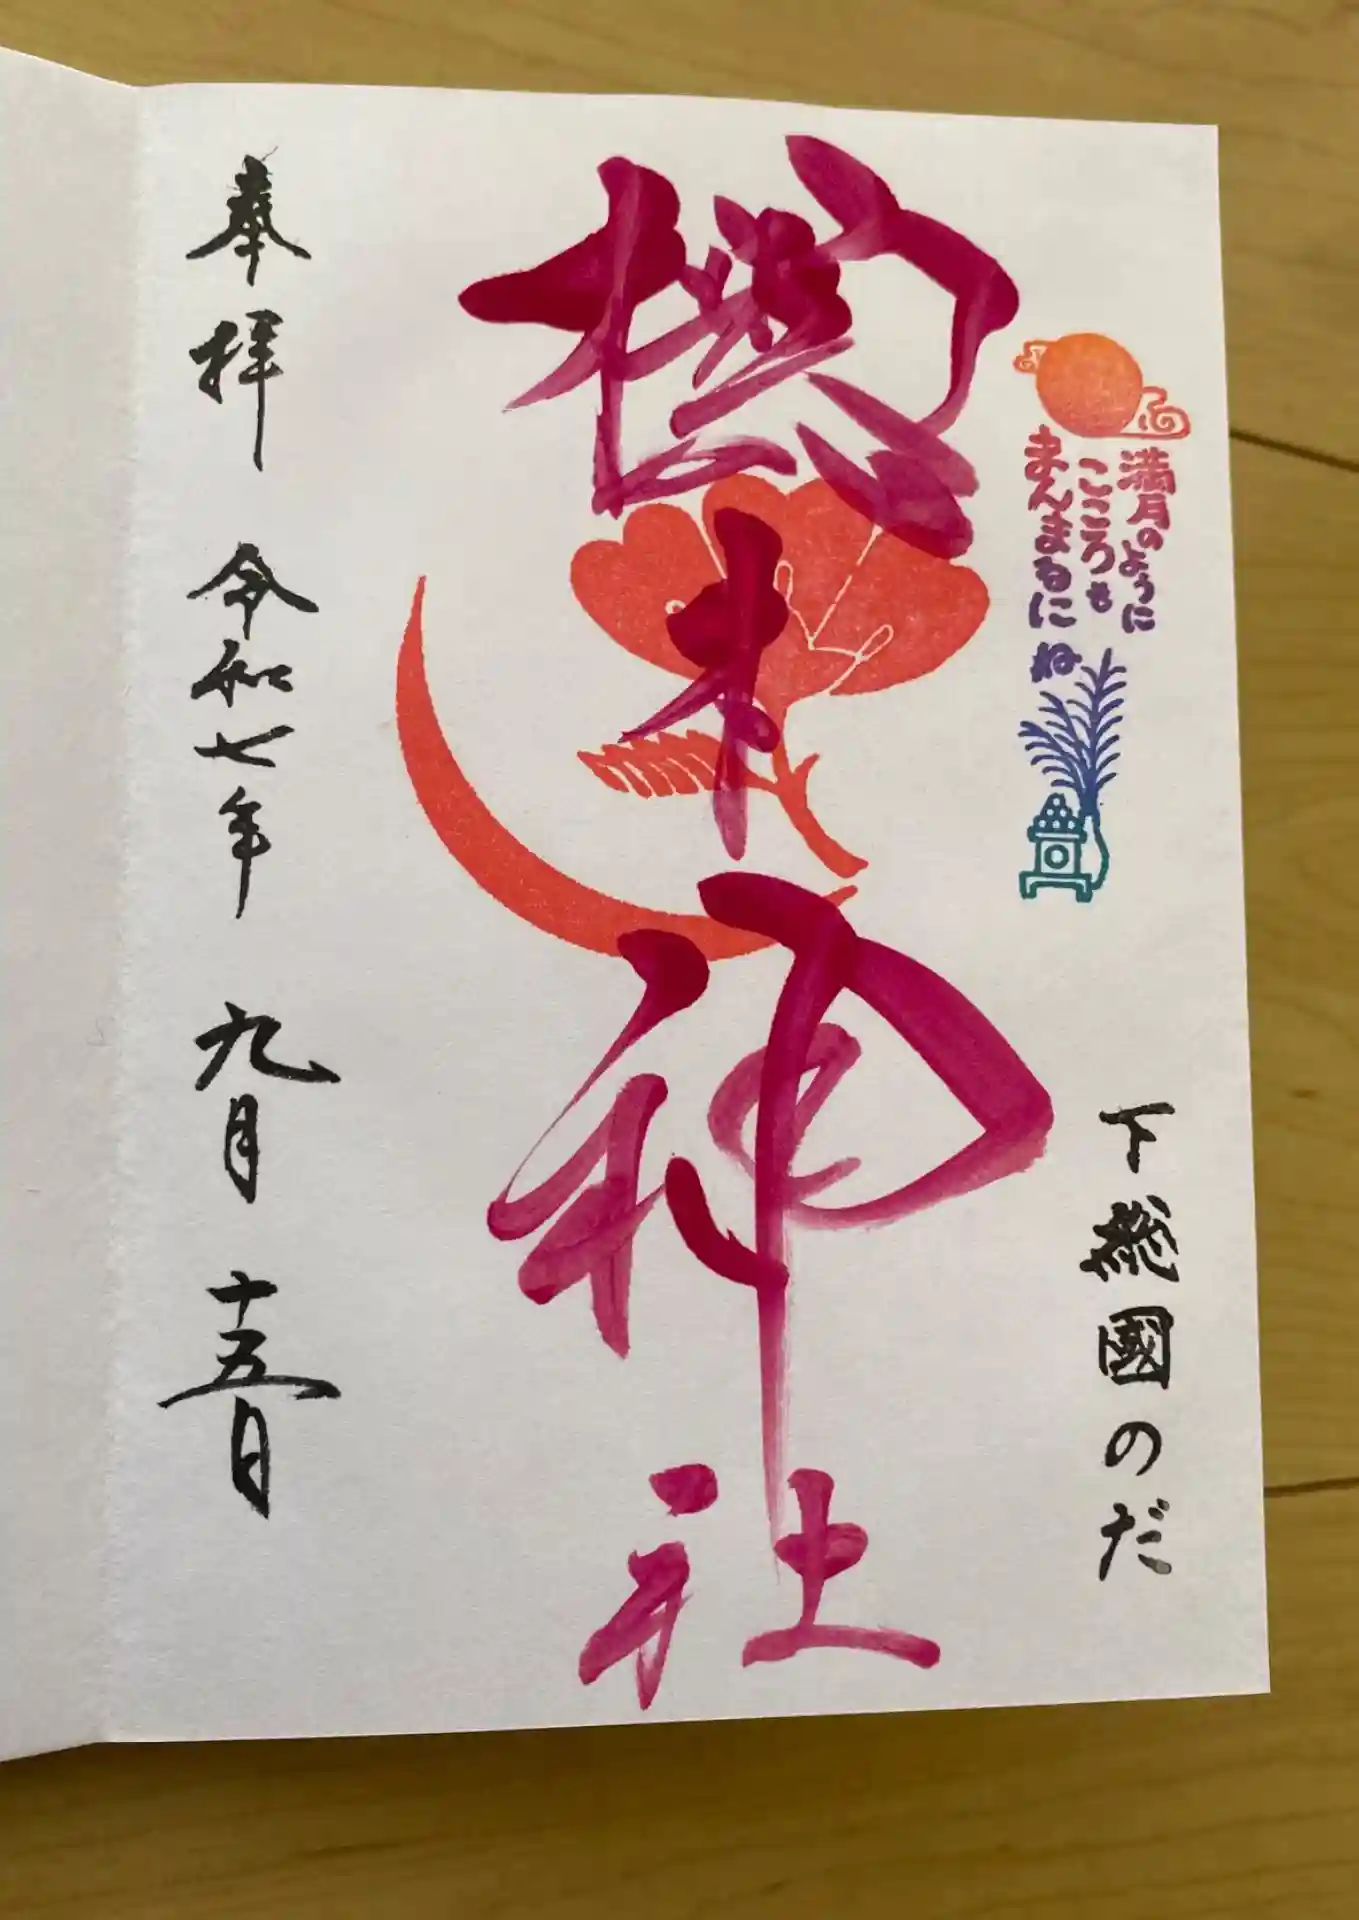 満月のように
こころも
まんまるにね
下総國のだ
櫻木神社
奉拝 令和七年 九月 十五日